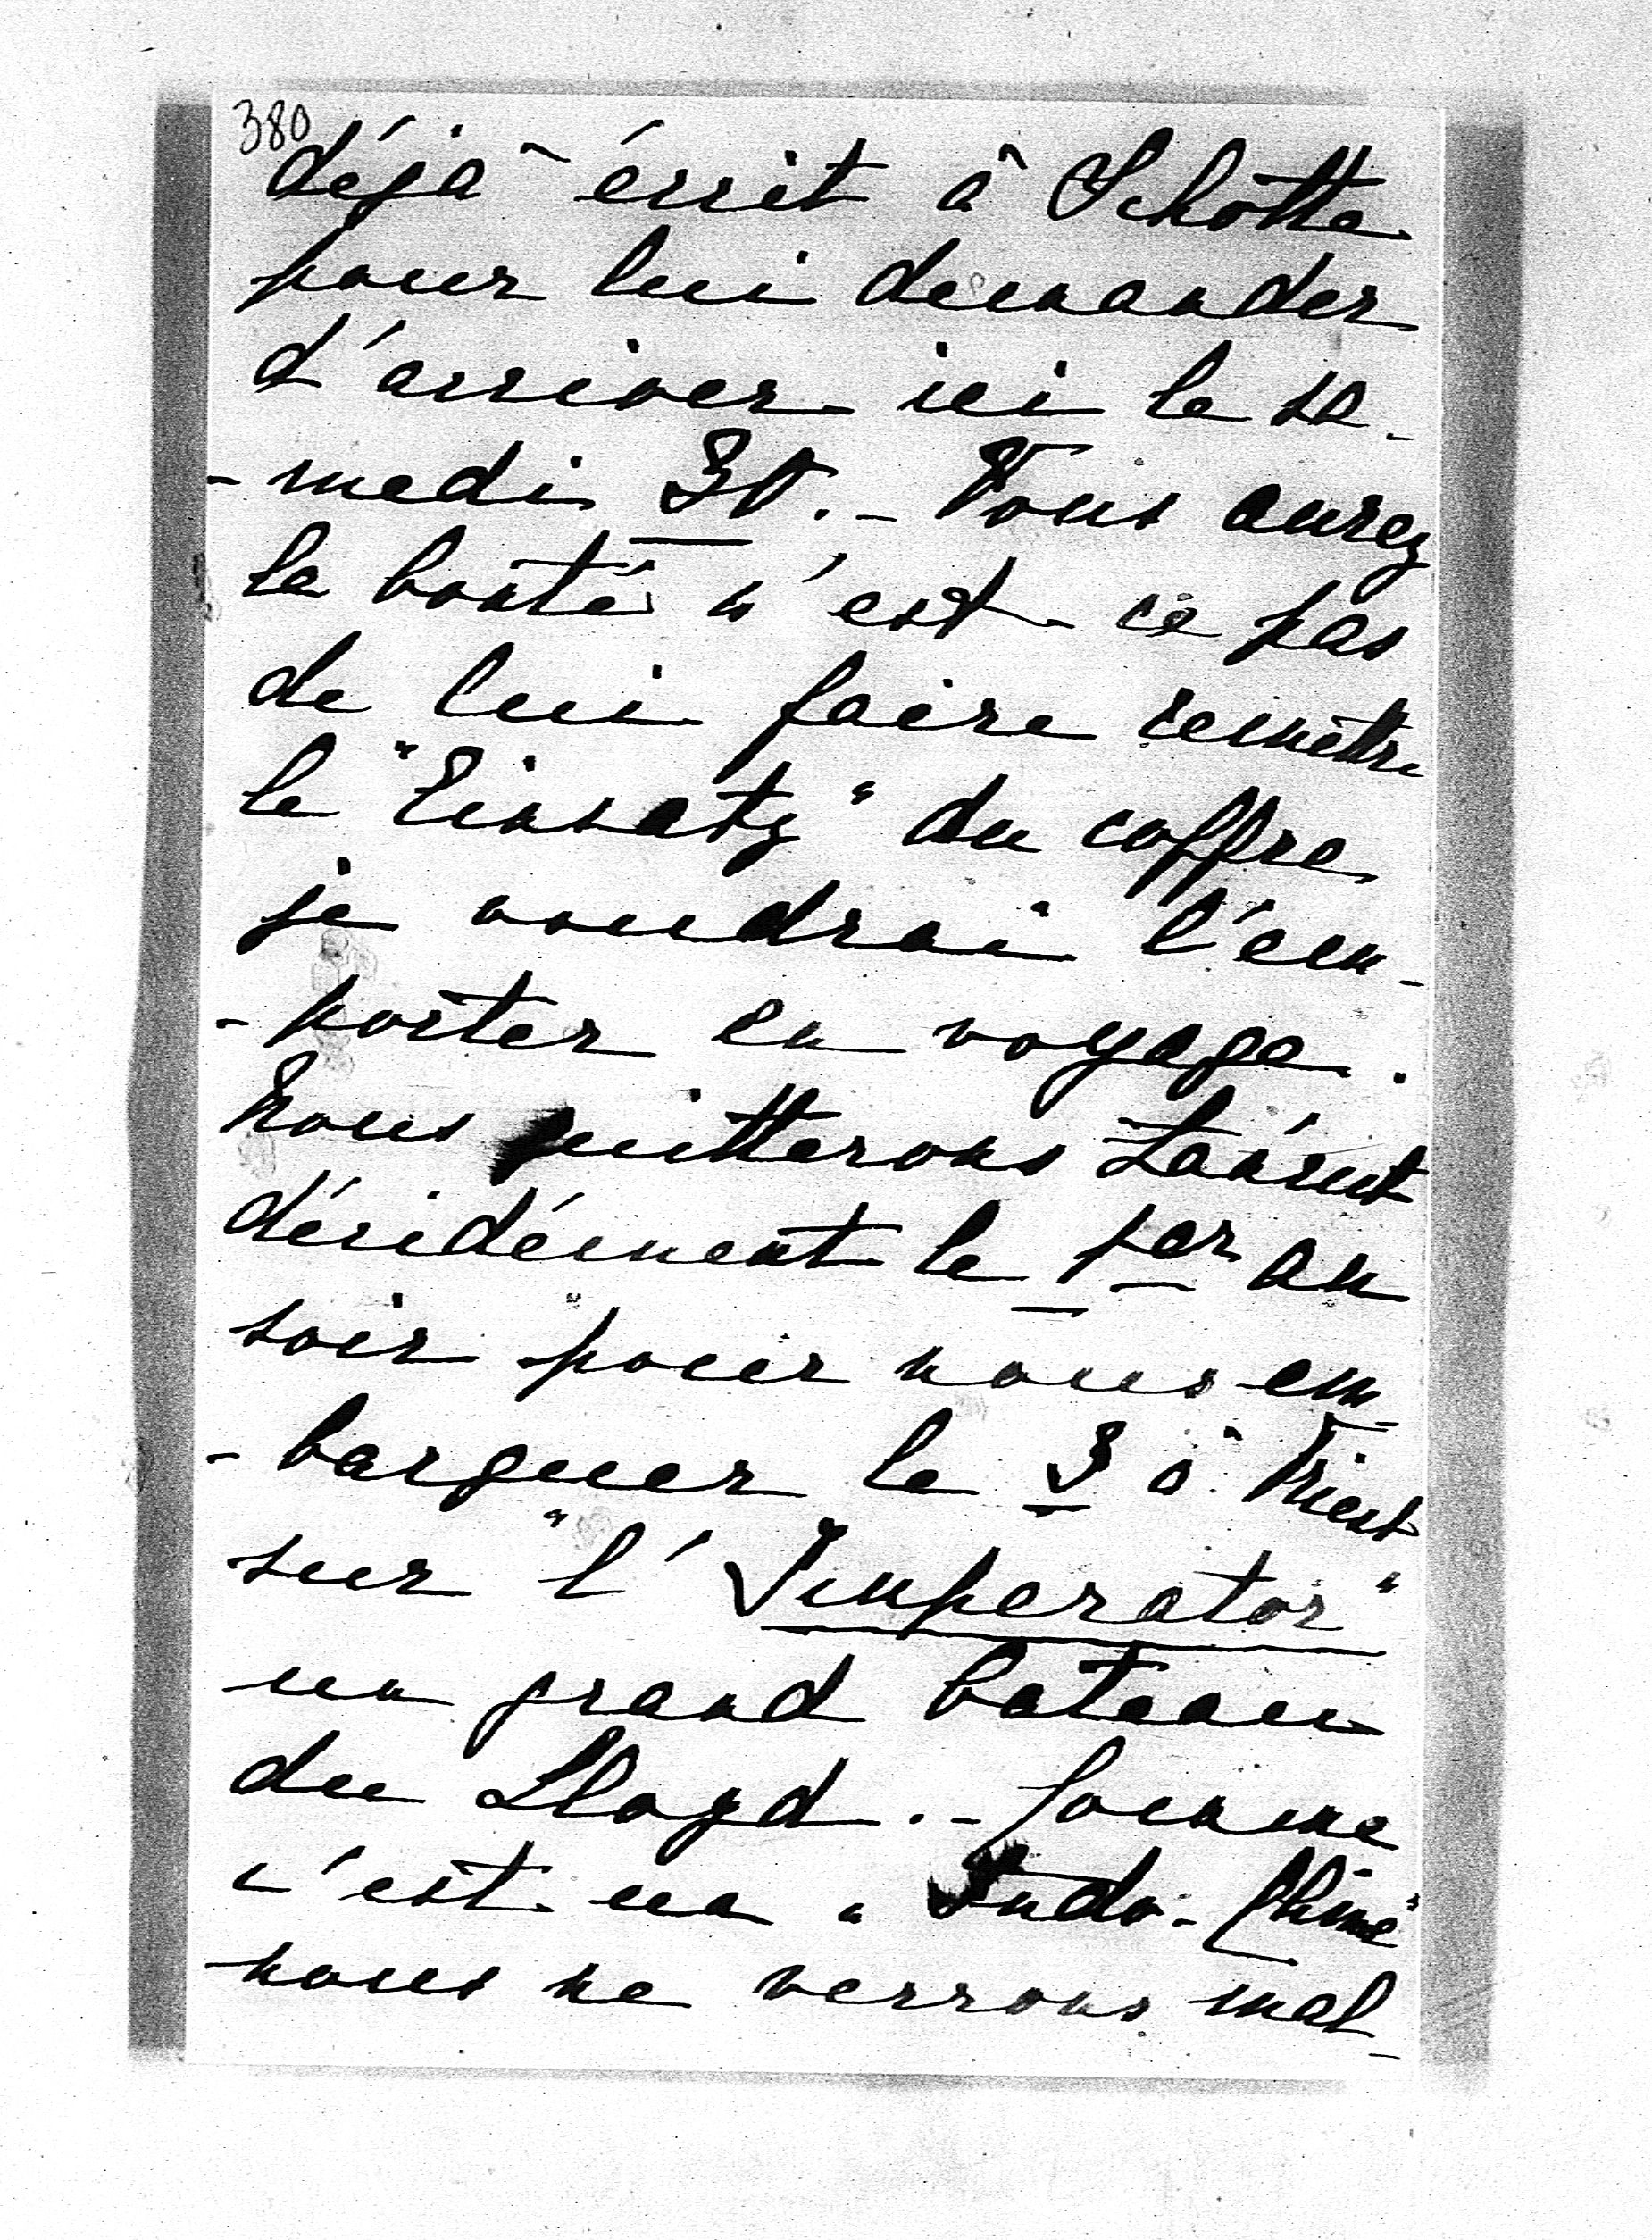 380
déjà écrit à Schotte
pour lui demander
d'arriver ici le sa-
-medi 30. - Vous aurez
la bonté n'est-ce pas
de lui faire remettre
le "Einsatz" du coffre
je voudrai l'em-
-porter en voyage.
Nous quitterons
décidément le 1er au
soir pour nous em-
-barquer le 3 à Triest
sur "l'Imperator"
un grand bateau
du Lloyd. - Comme
c'est un "Indo-Chine"
nous ne verrons mal-